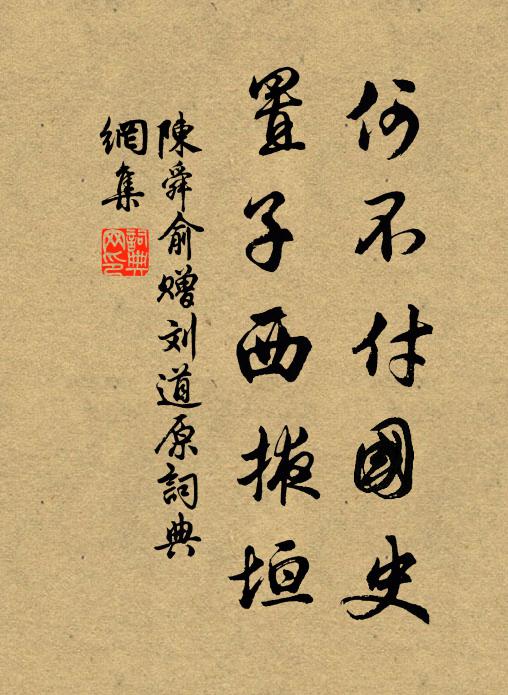 何不付國史
置子西掖垣
陳舜俞赠刘道原詞典
網集
詞典網印